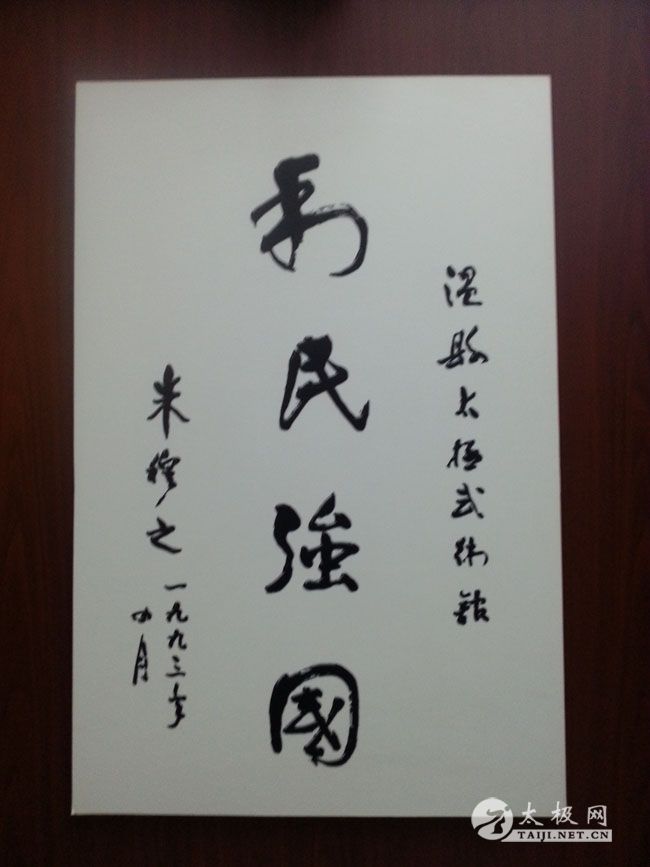 温縣太極武術館
利民強國
朱穆之一九九三年
四月
太极网
TAIJI.NET.CN